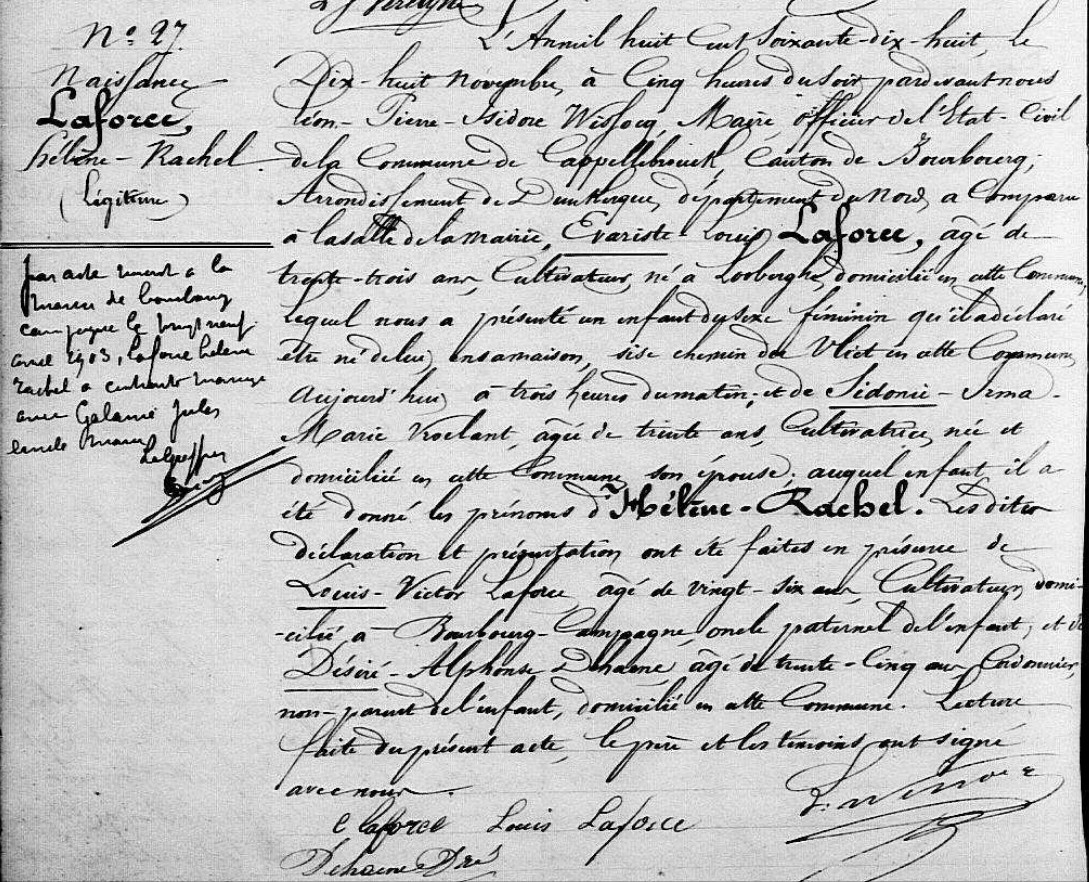 N° 27
Naissance
Laforce,
Hélène - Rachel
(Légitime)
par acte
mairie de Bourbourg
campagne le vingt neuf
avril 1903, Laforce Helene
Rachel a contracté mariage
avec Jules
Le Greffier
L'An mil huit Cent Soixante-dix-huit, le
Dix-huit Novembre, à Cinq heures du Soir pardevant nous
Léon-Pierre-Isidore Wissocq, Maire, officier de l'Etat-Civil
de la Commune de Cappellebrouck, Canton de Bourbourg,
Arrondissement de Dunkerque, département du Nord, a Comparu
à la salle de la mairie, Evariste-Louis Laforce, âgé de
trente-trois ans, Cultivateur, né à Looberghe, domicilié en cette Commune,
Lequel nous a présenté un enfant du sexe féminin qu'il a déclaré
être né de lui, en sa maison, sise chemin du Vliet en cette Commune,
Aujourd'hui, à trois heures du matin, et de Sidonie-Irma-
Marie Vroelant, âgée de trente ans, Cultivatrice, née et
domiciliée en cette Commune, son épouse, auquel enfant il a
été donné les prénoms d'Hélène-Rachel. Lesdites
déclaration et présentation ont été faites en présence de
Louis-Victor Laforce, âgé de vingt-six ans, Cultivateur, domi-
-cilié à Bourbourg-Campagne, oncle paternel de l'enfant, et de
Désiré-Alphonse Dehaene, âgé de trente-Cinq ans, Cordonnier,
non-parent de l'enfant, domicilié en cette Commune. Lecture
faite du présent acte, le père et les témoins ont signé
avec nous.
E Laforce Louis Laforce
Dehaene Dré